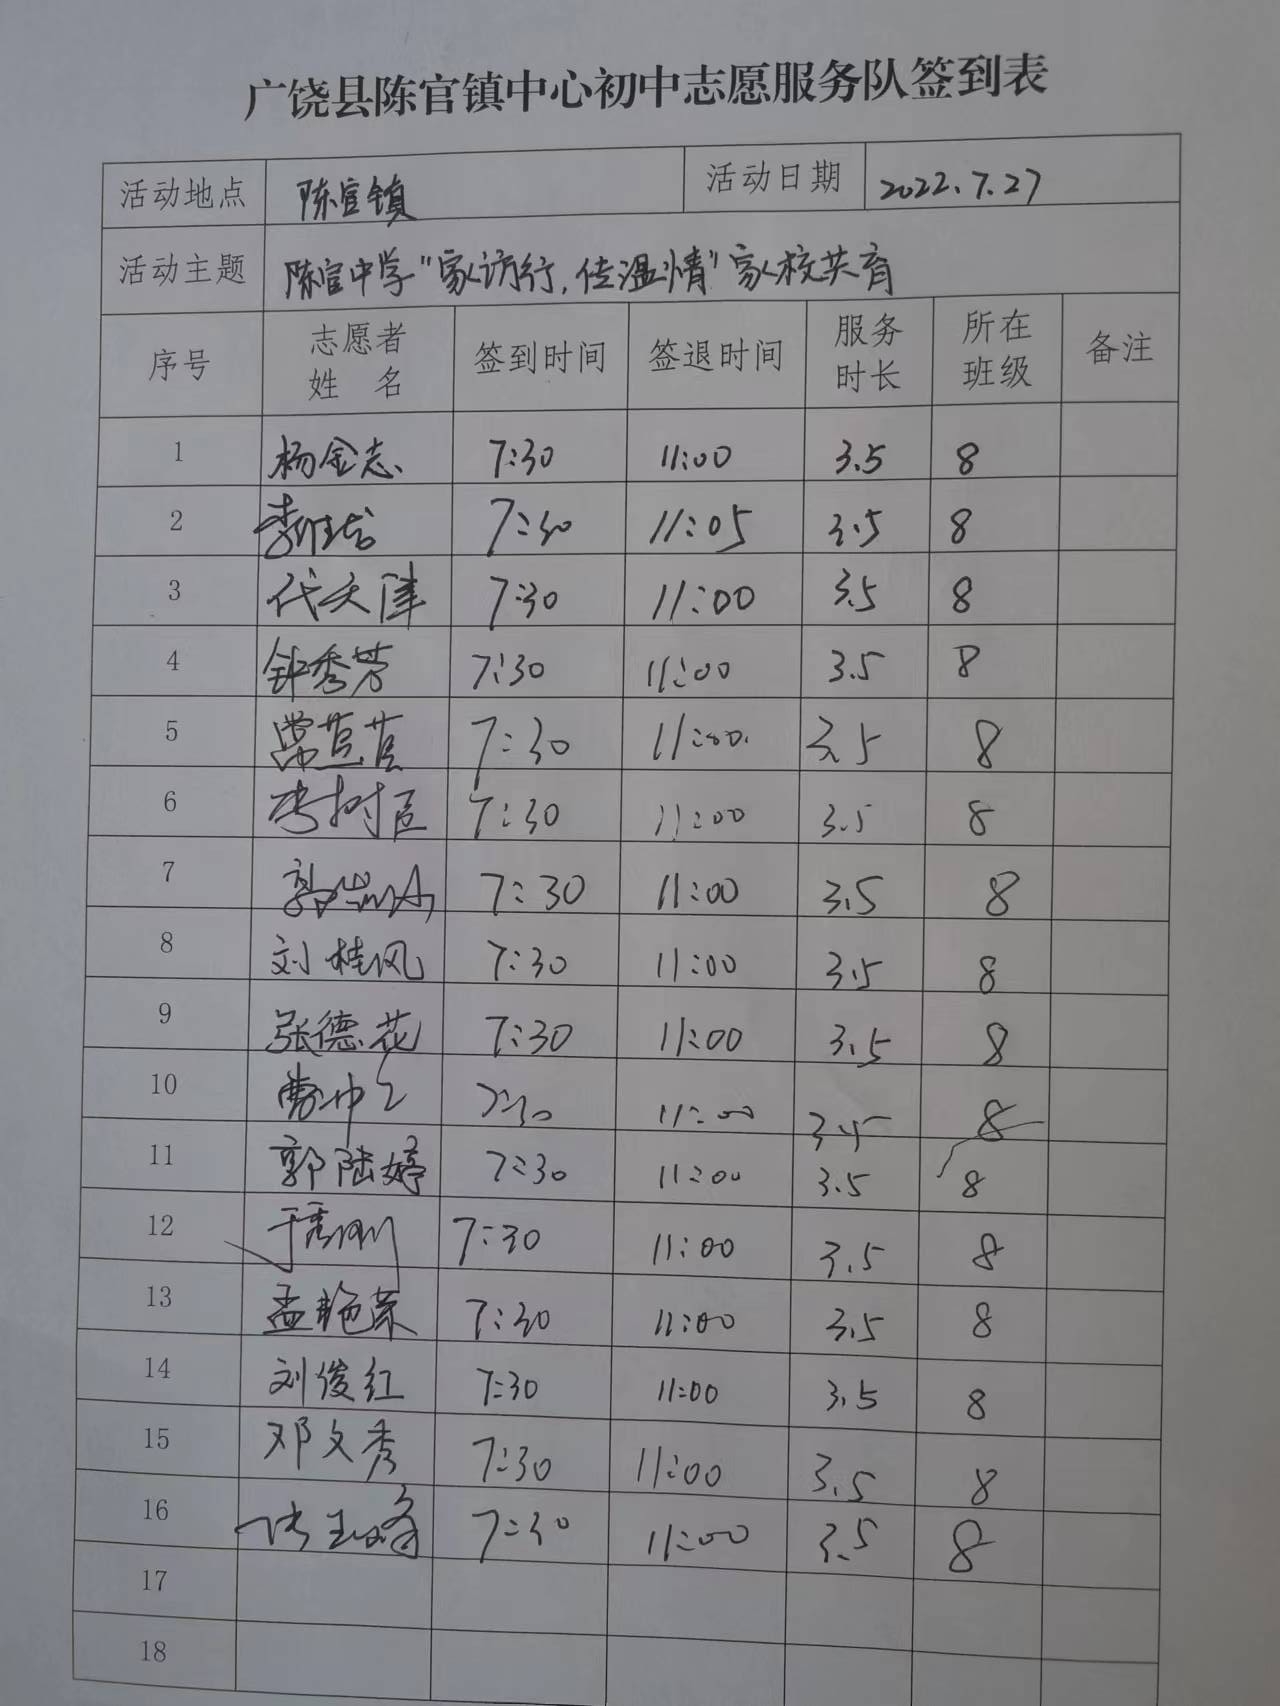 广饶县陈官镇中心初中志愿服务队签到表
活动地点 陈官镇 活动日期 2022.7.27
活动主题 陈官中学"家访行,传温情"家校共育
序号 志愿者姓名 签到时间 签退时间 服务时长 所在班级 备注
1 杨金志 7:30 11:00 3.5 8
2 7:30 11:05 3.5 8
3 代天津 7:30 11:00 3.5 8
4 钟秀芳 7:30 11:00 3.5 8
5 常苣苣 7:30 11:00 3.5 8
6 李树臣 7:30 11:00 3.5 8
7 7:30 11:00 3.5 8
8 刘桂风 7:30 11:00 3.5 8
9 张德花 7:30 11:00 3.5 8
10 7:30 11:00 3.5 8
11 郭陆婷 7:30 11:00 3.5 8
12 于秀刚 7:30 11:00 3.5 8
13 孟艳荣 7:30 11:00 3.5 8
14 刘俊红 7:30 11:00 3.5 8
15 邓文秀 7:30 11:00 3.5 8
16 7:30 11:00 3.5 8
17
18